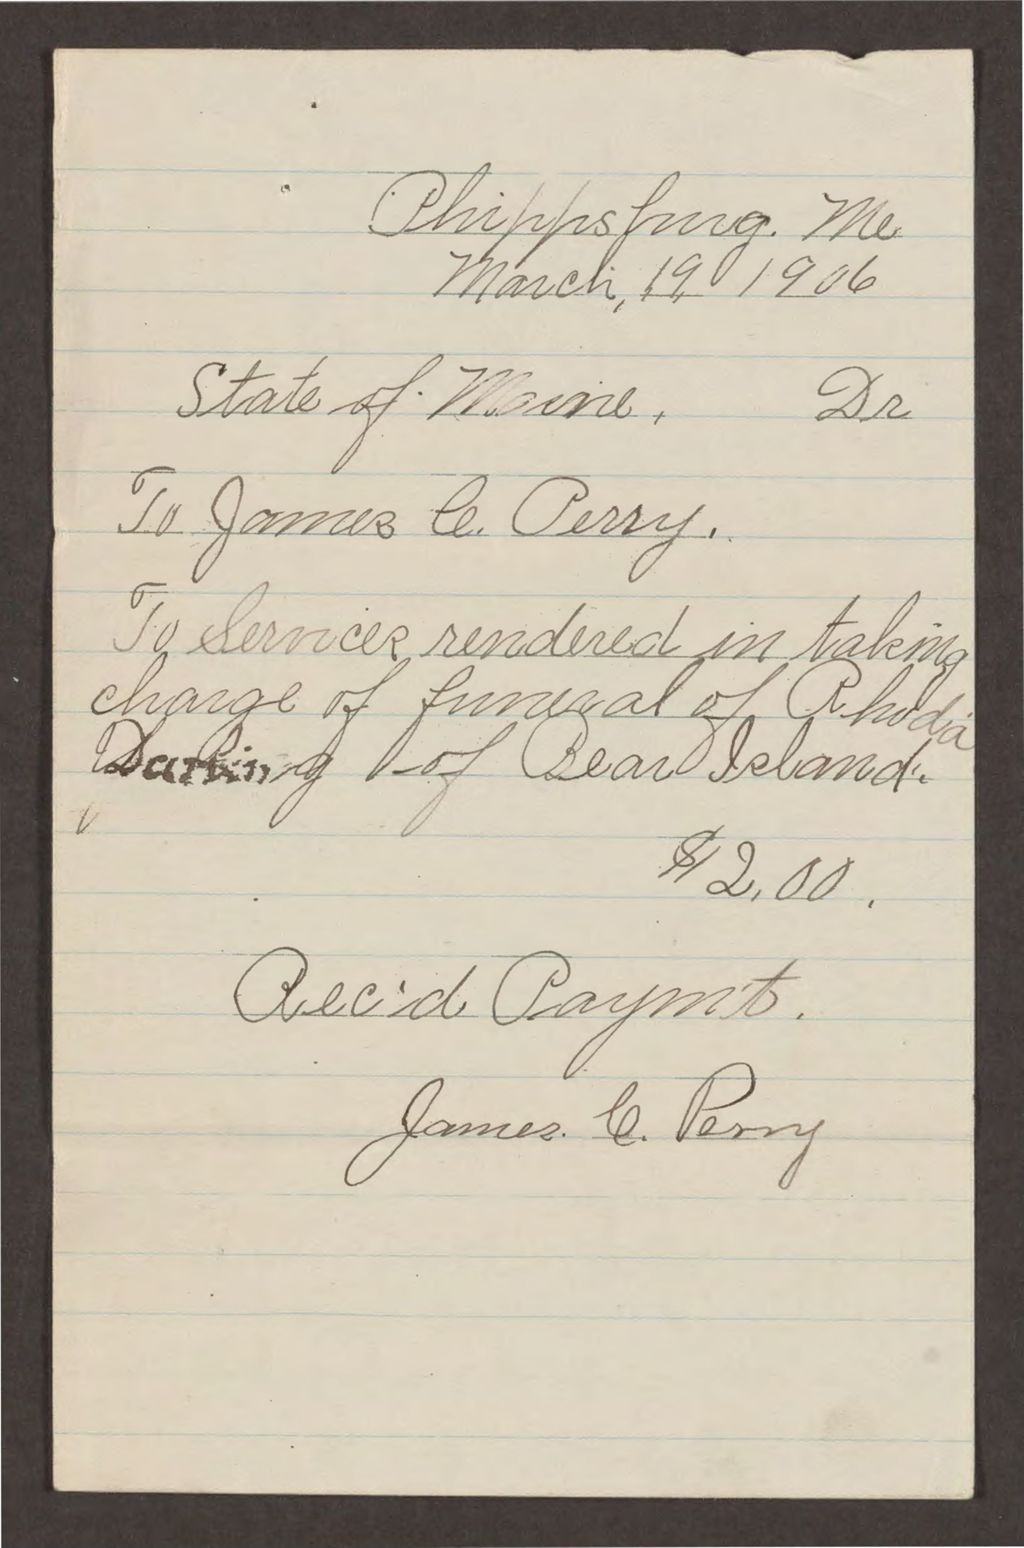 Phippsburg. Me
March, 19, 1906
State of Maine, Dr
To James C. Perry.
To Services rendered in taking
charge of funeral of Rhoda
Darling of Bear Island.
$2,00.
Rec'd Paym't.
James. C. Perry